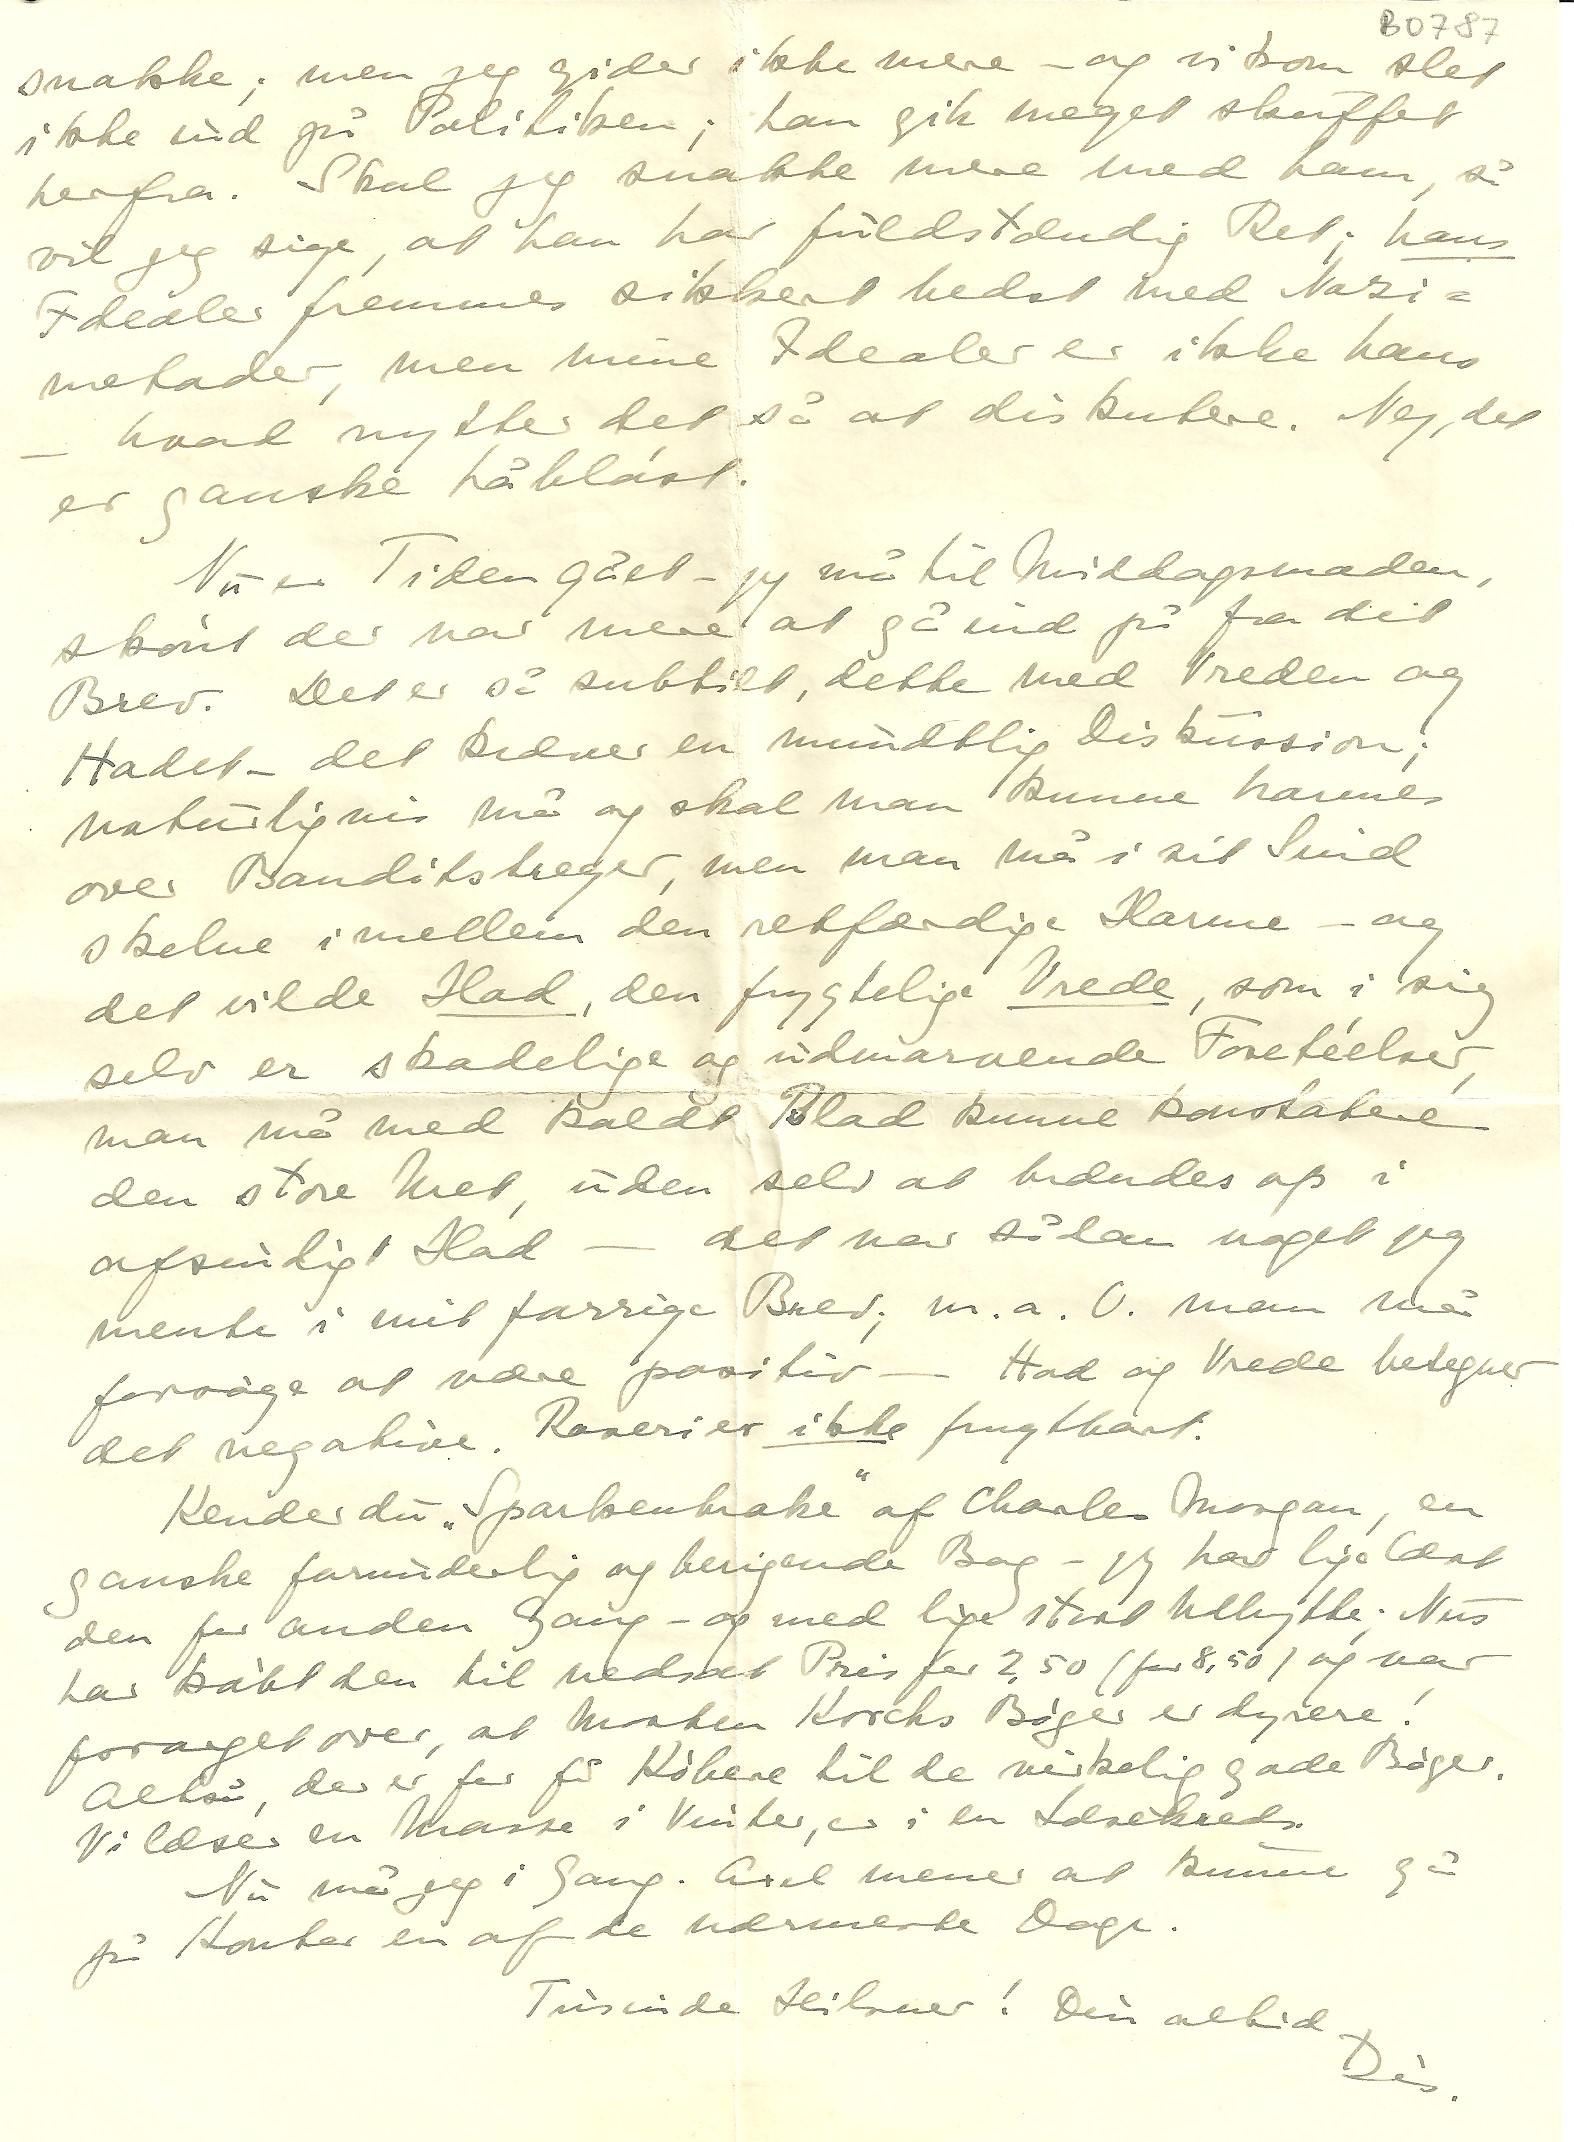 B0787
snakke; men jeg gider ikke mere - og vi kom slet
ikke ind på Politiken; han gik meget skuffet
herfra. Skal jeg snakke mere med ham, så
vil jeg sige, at han har fuldstændig Ret; hans
Idealer fremmes sikkert bedst med Nazi=
metoder, men mine Idealer er ikke hans
- hvad nytter det så at diskutere. Nej, det
er ganske håbløst.
Nu er Tiden gået - jeg må til Middagsmaden,
skønt der var mere at gå ind på fra dit
Brev. Det er så subtilt, dette med Vreden og
Hadet - det kræver en mundtlig Diskussion;
naturligvis må og skal man kunne harmes
over Banditstreger, men man må i sit Sind
skelne imellem den retfærdige Harme - og
det vilde Had, den frygtelige Vrede, som i sig
selv er skadelige og udmarvende Foreteelser,
man må med koldt Blod kunne konstatere
den store Uret, uden selv at hidses op i
afsindigt Had — det var sådan noget jeg
mente i mit forrige Brev; m.a.O. man må
forsøge at være positiv — Had og Vrede betegner
det negative. Raseri er ikke frugtbart.
Kender du „Sparkenbroke" af Charles Morgan, en
ganske forunderlig og berigende Bog - jeg har lige læst
den for anden Gang - og med lige stort Udbytte. Nus
har købt den til nedsat Pris for 2,50 (før 8,50) og var
forarget over, at Morten Korchs Bøger er dyrere!
Altså, der er for få Købere til de virkelig gode Bøger.
Vi læser en Masse i Vinter, er i en Læsekreds.
Nu må jeg i Gang. Axel mener at kunne gå
på Kontor en af de nærmeste Dage.
Tusinde Hilsner! Din altid
Dis.